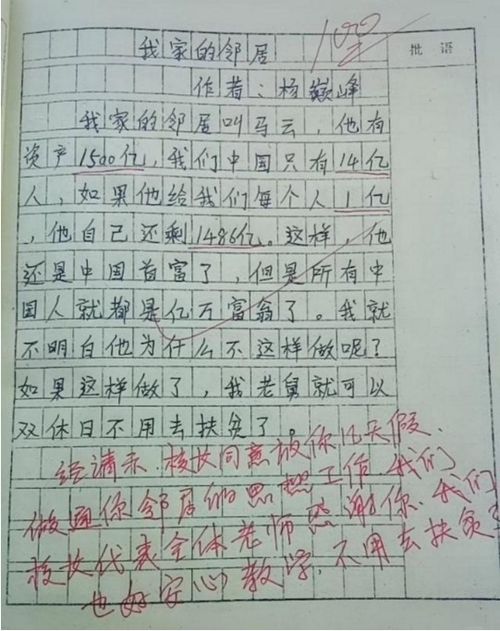 100
批语
我家的邻居
作者:杨巅峰
我家的邻居叫马云,他有
资产1500亿,我们中国只有14亿
人,如果他给我们每个人1亿
,他自己还剩1486亿。这样,他
还是中国首富了,但是所有中
国人就都是亿万富翁了。我就
不明白他为什么不这样做呢?
如果这样做了,我老舅就可以
双休日不用去扶贫了。
经请示,校长同意放你几天假,
做通你邻居的思想工作,我们
校长代表全体老师感谢你,我们
也好安心教学,不用去扶贫